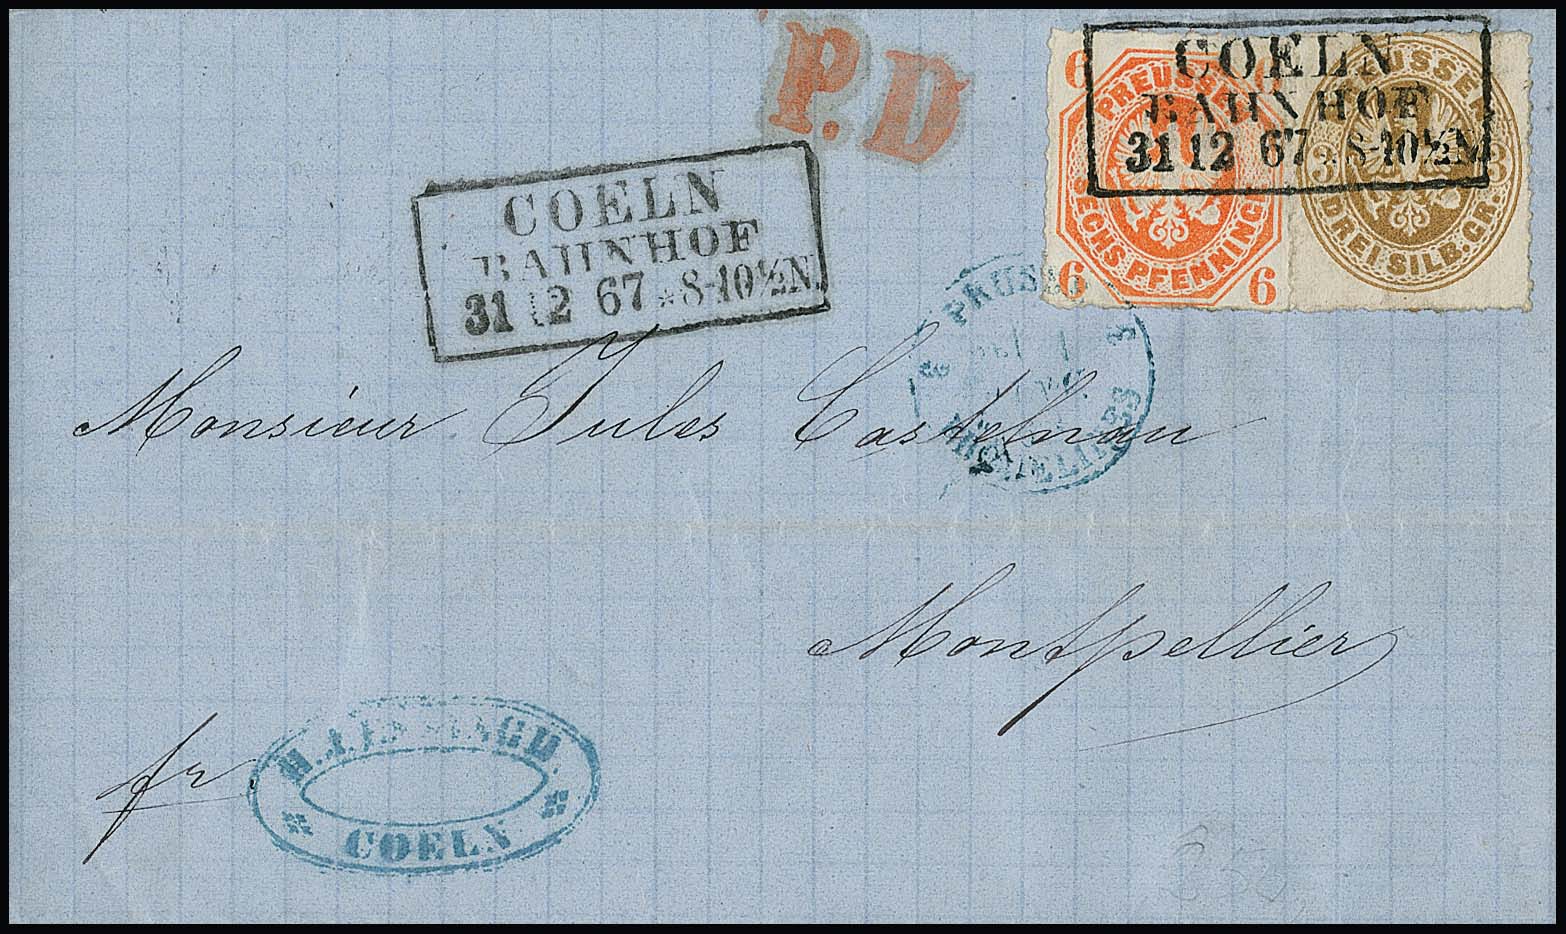 P.D
6 6
PREUSSEN
SECHS PFENNINGE
6 6
PREUSSEN
3 3
DREI SILB. GR.
COELN
BAHNHOF
31 12 67 * 8-10½N.
COELN
BAHNHOF
31 12 67 * 8-10½N.
Monsieur Jules Castelnau
Montpellier
fr
COELN